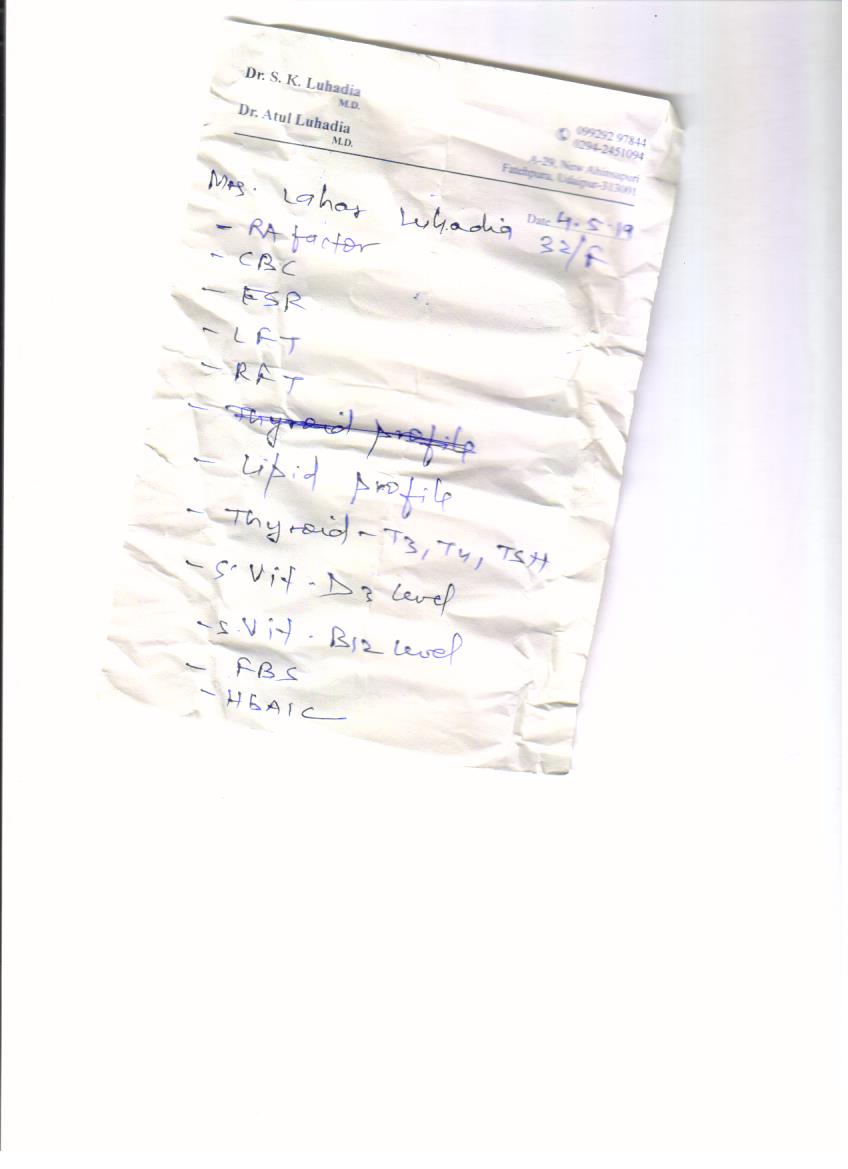 Dr. S. K. Luhadia
M.D.
Dr. Atul Luhadia
M.D.
099292 97844
0294-2451094
A-29, New Ahinsapuri
Fatehpura, Udaipur-313001
Date 4.5.19
Mrs. Lahar Luhadia 32/F
- RA factor
- CBC
- ESR
- LFT
- RFT
- Thyroid profile
- Lipid profile
- Thyroid - T3, T4, TSH
- S. Vit. D3 level
- S. Vit. B12 level
- FBS
- HbA1C